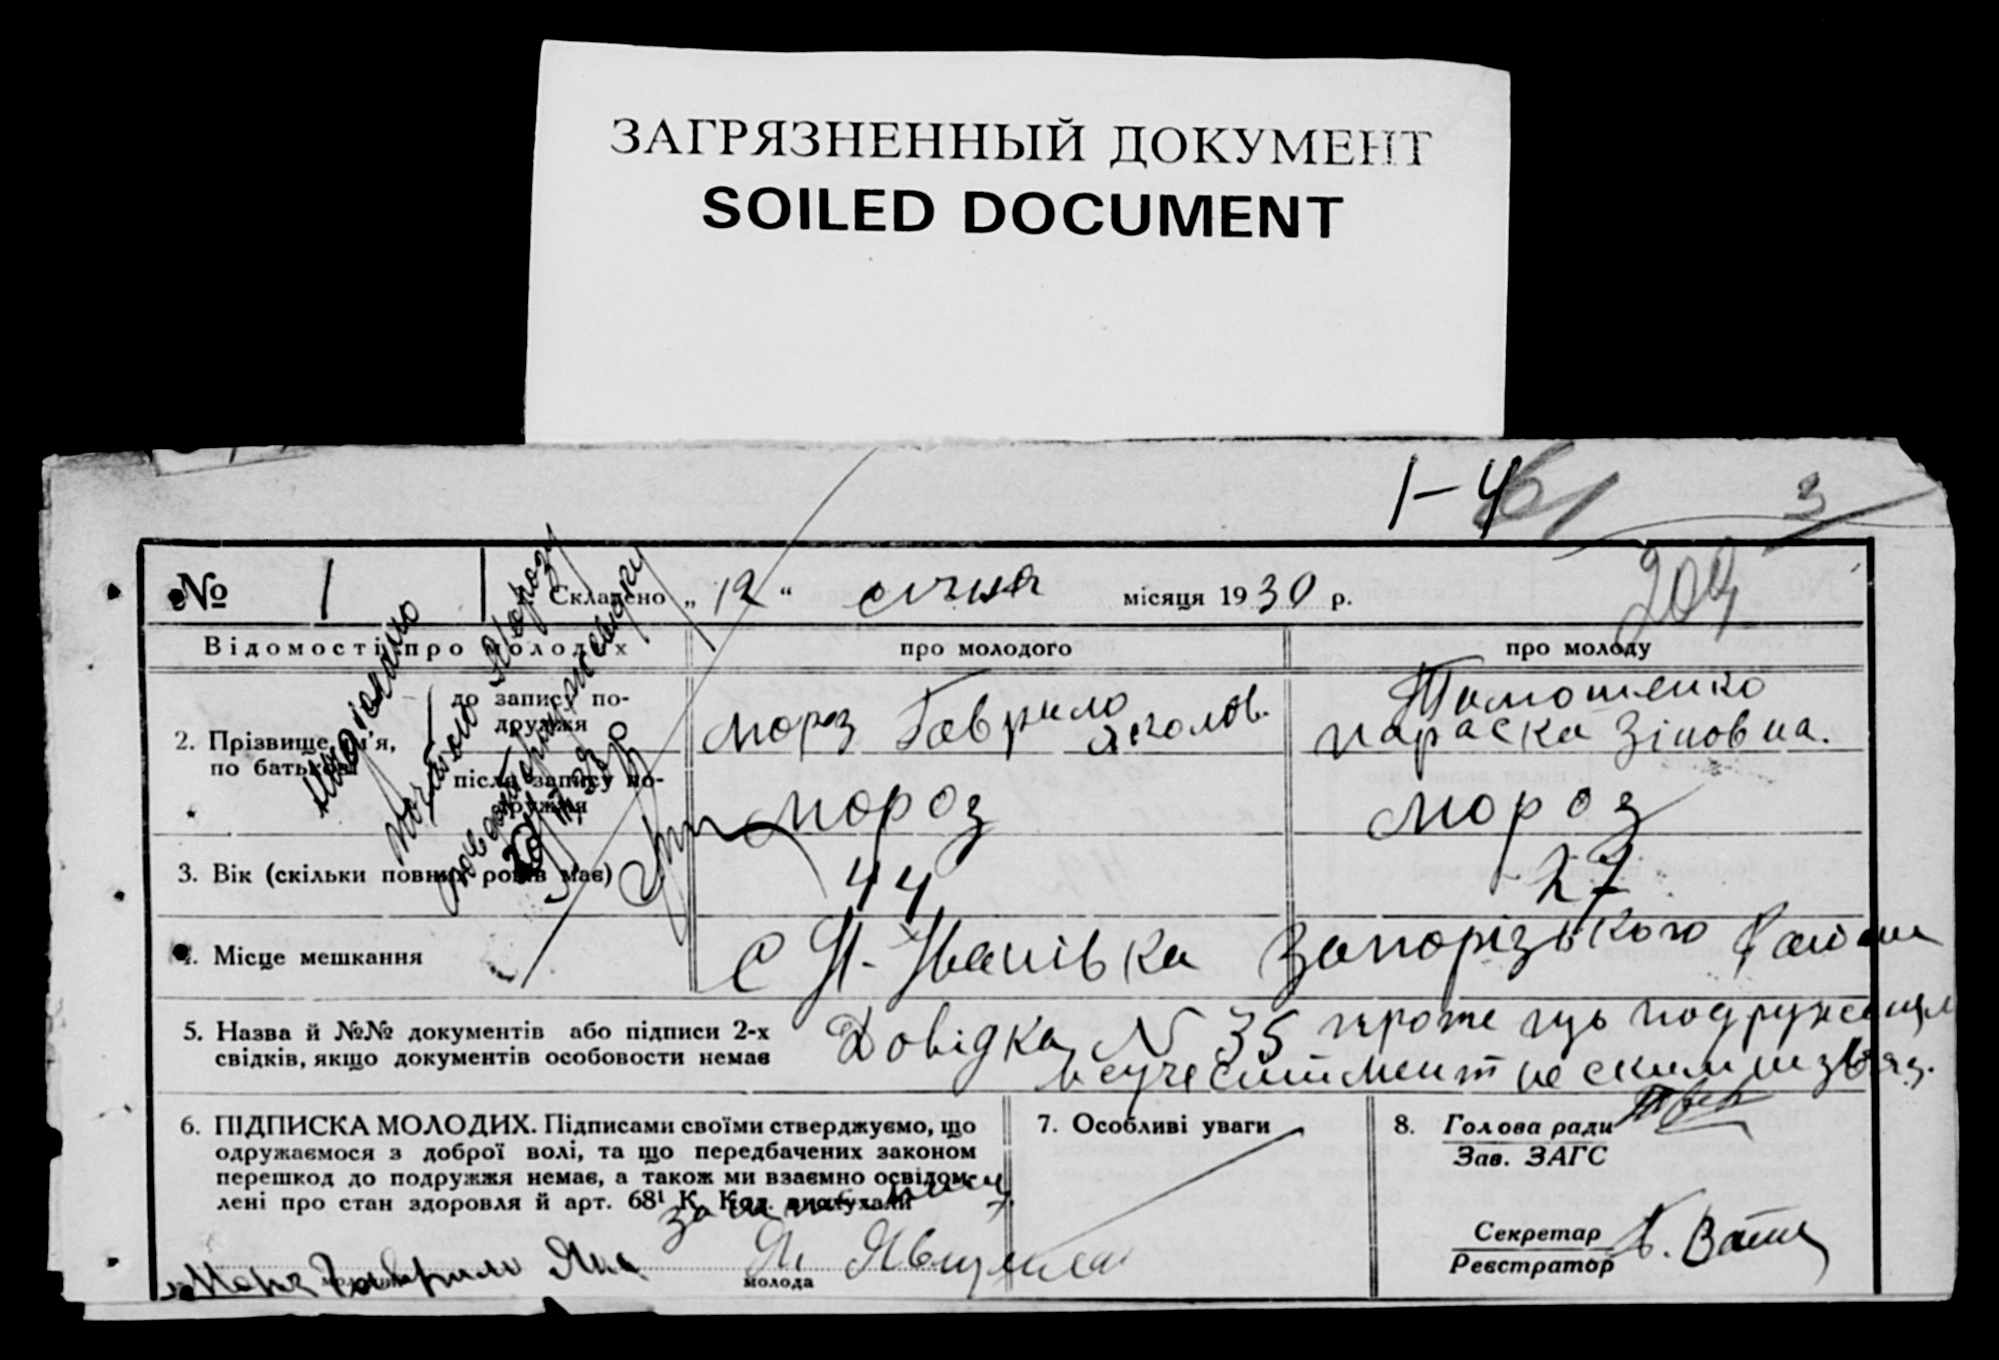 ЗАГРЯЗНЕННЫЙ ДОКУМЕНТ
SOILED DOCUMENT
1-4 61 3
204
№ 1 Складено „ 12 “ січня місяця 1930 р.
Відомості про молодих
про молодого
про молоду
2. Прізвище, ім'я, по батькові
до запису подружжя
Мороз Гаврило Яголов.
Тимошенко
Параска Зіновна.
після запису подружжя
Мороз
Мороз
3. Вік (скільки повних років має)
44
27
4. Місце мешкання
С Н-Іванівка Запорізького району
5. Назва й №№ документів або підписи 2-х
свідків, якщо документів особовости немає
Довідка N 35 про те що подружжя
в сучесний мент не є ким не звяз.
6. ПІДПИСКА МОЛОДИХ. Підписами своїми стверджуємо, що
одружаємося з доброї волі, та що передбачених законом
перешкод до подружжя немає, а також ми взаємно освідом-
лені про стан здоровля й арт. 68¹ К. Код. вислухали
Мороз Гаврило
молода
7. Особливі уваги
8. Голова ради
Зав. ЗАГС
Секретар
Реєстратор